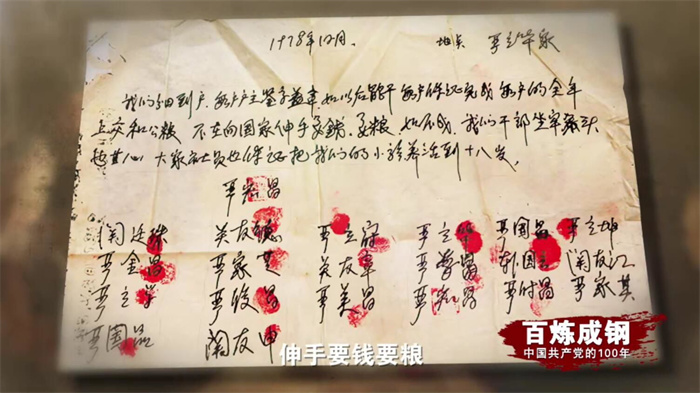 1978年12月. 地点 严立华家
我们分田到户, 每户户主签字盖章, 如以后能干 每户保证完成每户的全年
上交和公粮 不在向国家伸手要钱, 要粮 如不成, 我们干部坐牢杀头
也甘心, 大家社员也保证把我们的小孩养活到十八岁。
严宏昌
关廷珠 关友德 严立富 严立华 严国昌 严立坤
严金昌 严家芝 关友章 严学昌 韩国云 关友江
严立学 严俊昌 严美昌 严付昌 严家其
严国品 关友申
百炼成钢
中国共产党的100年
伸手要钱要粮